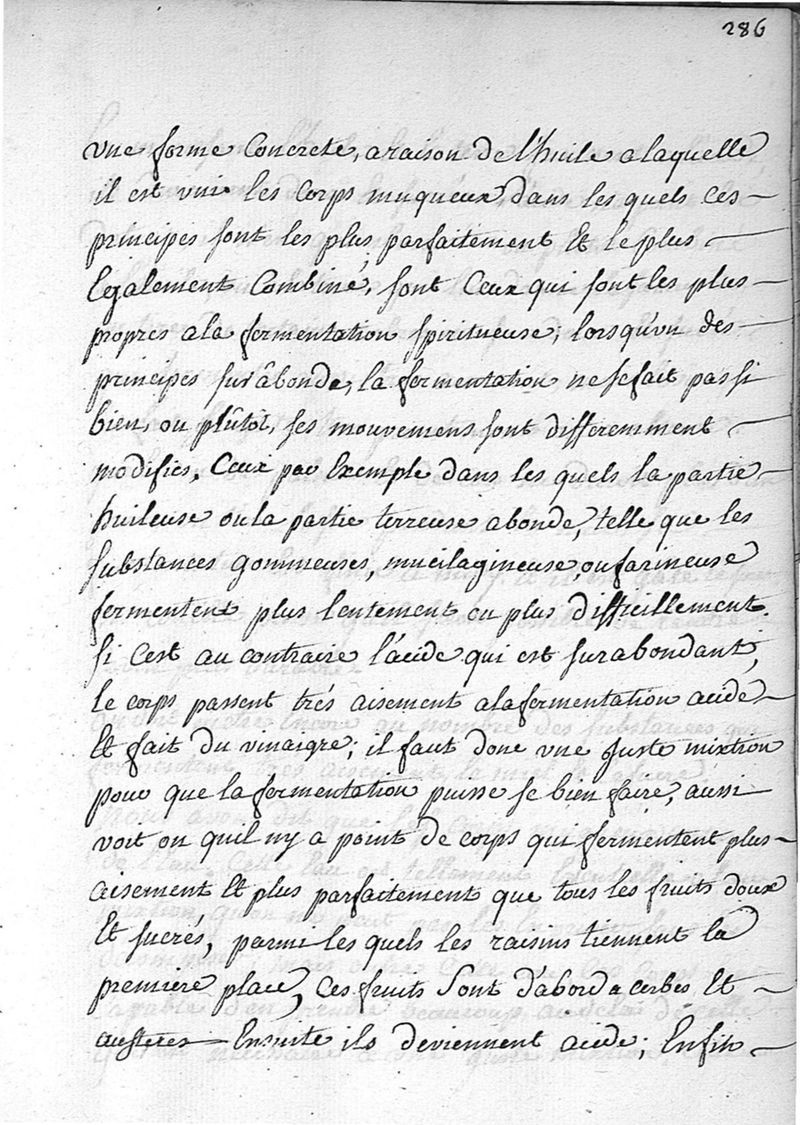 286
une forme Concrete, a raison de l'huile a laquelle
il est unir les Corps muqueux, dans les quels Ces
principes sont les plus parfaitement Et le plus
Egalement Combiné, sont Ceux qui sont les plus
propres a la fermentation spiritueuse; lorsqu'un des
principes surâbonde, la fermentation ne se fait pas si
bien, ou plûtôt, ses mouvemens sont differemment
modifiés, Ceux par Exemple dans les quels la partie
huileuse ou la partie terreuse abonde, telle que les
substances gommeuses, mucilagineuse, ou farineuse
fermentent plus lentement ou plus difficillement
si C'est au contraire l'acide qui est surabondant,
le corps passent trés aisement a la fermentation acide
Et fait du vinaigre; il faut donc une juste mixtion
pour que la fermentation puisse se bien faire, aussi
voit on quil ny a point de corps qui fermentent plus
aisement Et plus parfaitement que tous les fruits doux
Et sucrés, parmi les quels les raisins tiennent la
premiere place, Ces fruits Sont d'abord acerbes Et
austeres Ensuite ils deviennent acide; Enfin